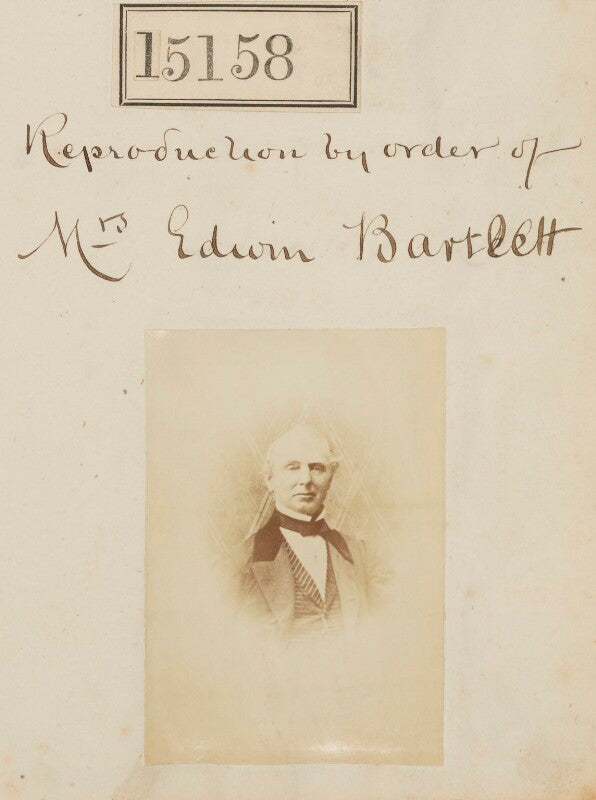 15158
Reproduction by order of
Mrs Edwin Bartlett